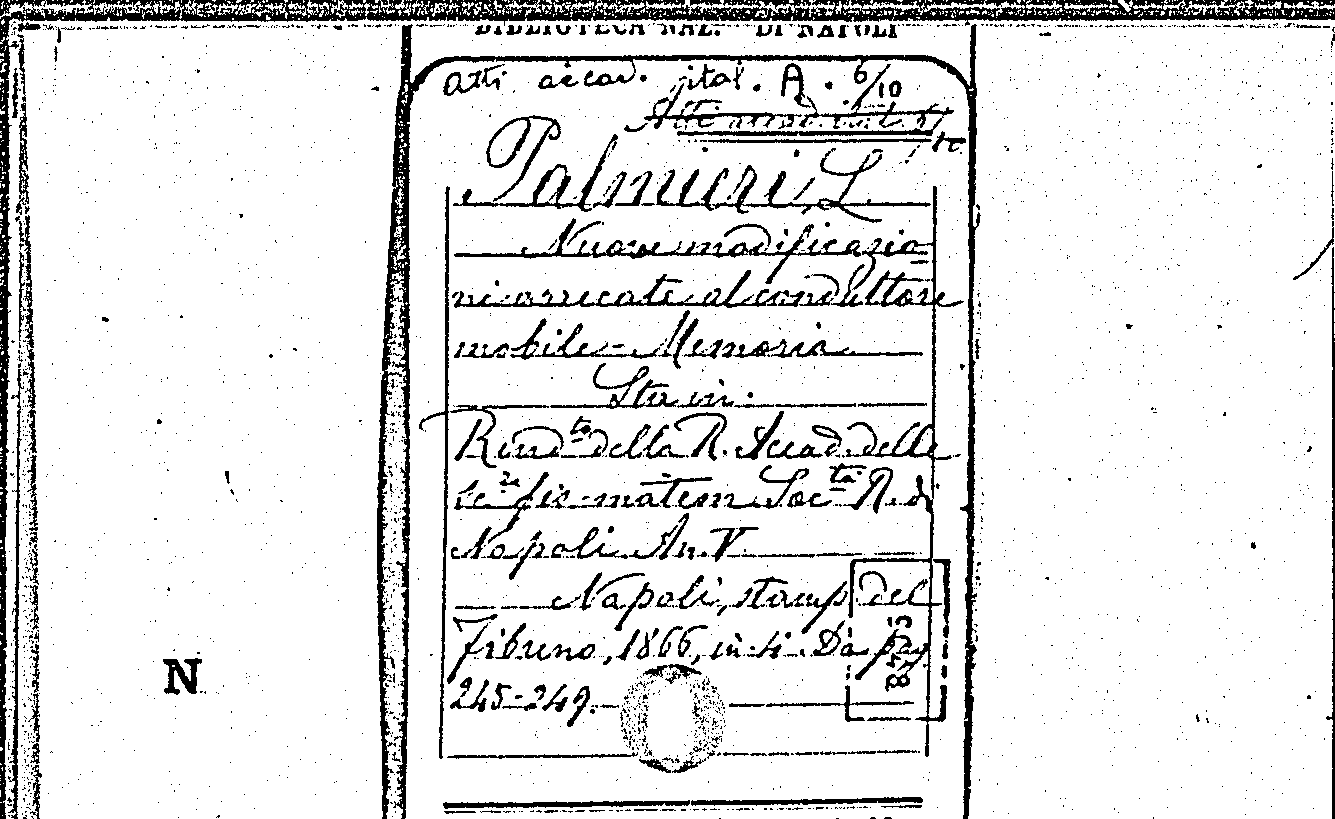 BIBLIOTECA NAZ. DI NAPOLI
Atti accad. ital. A. 6/10
Atti accad. ital. 6/10
Palmieri, L.
Nuove modificazio=
ni arrecate al conduttore
mobile - Memoria
Sta in:
Rend.to della R. Accad. delle
sc.ze fis. matem Soc.tà R. di
Napoli An. V.
Napoli, stamp. del
Fibreno, 1866, in-4. Da pag
245-249.
N